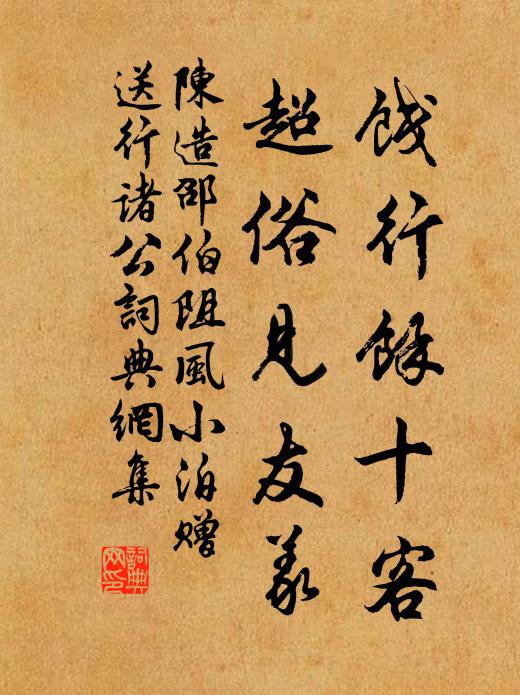 餞行餘十客
超俗見友義
陳造邵伯阻風小泊贈
送行諸公詞典網集
詞典网印